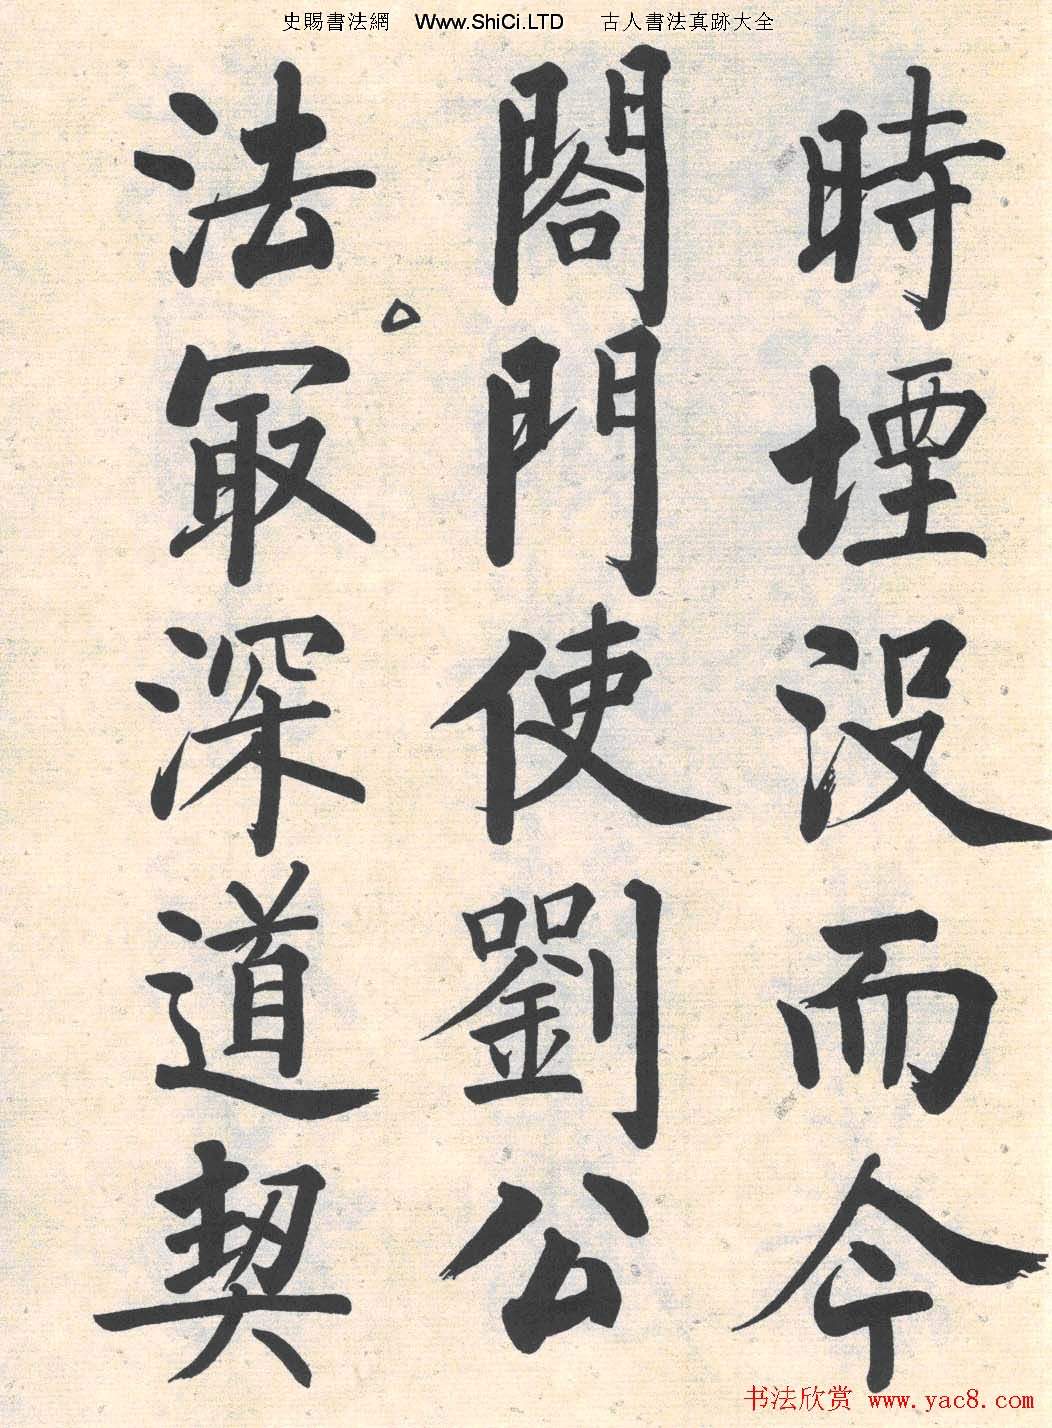 史賜書法網 Www.ShiCi.LTD 古人書法真跡大全
時堙没而今
閤門使劉公
法冣深道契
书法欣赏 www.yac8.com